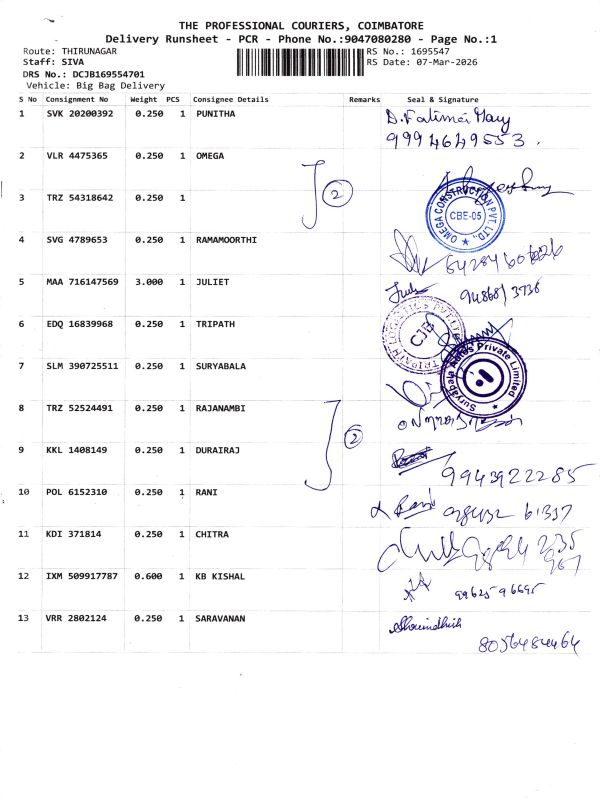 THE PROFESSIONAL COURIERS, COIMBATORE
Delivery Runsheet - PCR - Phone No.:9047080280 - Page No.:1
Route: THIRUNAGAR
Staff: SIVA
DRS No.: DCJB169554701
Vehicle: Big Bag Delivery
RS No.: 1695547
RS Date: 07-Mar-2026
S No Consignment No Weight PCS Consignee Details Remarks Seal & Signature
1 SVK 20200392 0.250 1 PUNITHA D. Fatimai Mary
9994649553.
2 VLR 4475365 0.250 1 OMEGA
2
3 TRZ 54318642 0.250 1
OMEGA CONSTRUCTION PVT. LTD.,
CBE-05
4 SVG 4789653 0.250 1 RAMAMOORTHI
5 MAA 716147569 3.000 1 JULIET
94868/3736
6 EDQ 16839968 0.250 1 TRIPATH
TRIPATH LOGISTICS PVT.LTD
CJB
7 SLM 390725511 0.250 1 SURYABALA
Suryabala Autos Private Limited
8 TRZ 52524491 0.250 1 RAJANAMBI
2
9 KKL 1408149 0.250 1 DURAIRAJ
9943922285
10 POL 6152310 0.250 1 RANI Rani
11 KDI 371814 0.250 1 CHITRA
12 IXM 509917787 0.600 1 KB KISHAL
99625 96695
13 VRR 2802124 0.250 1 SARAVANAN
8056484464